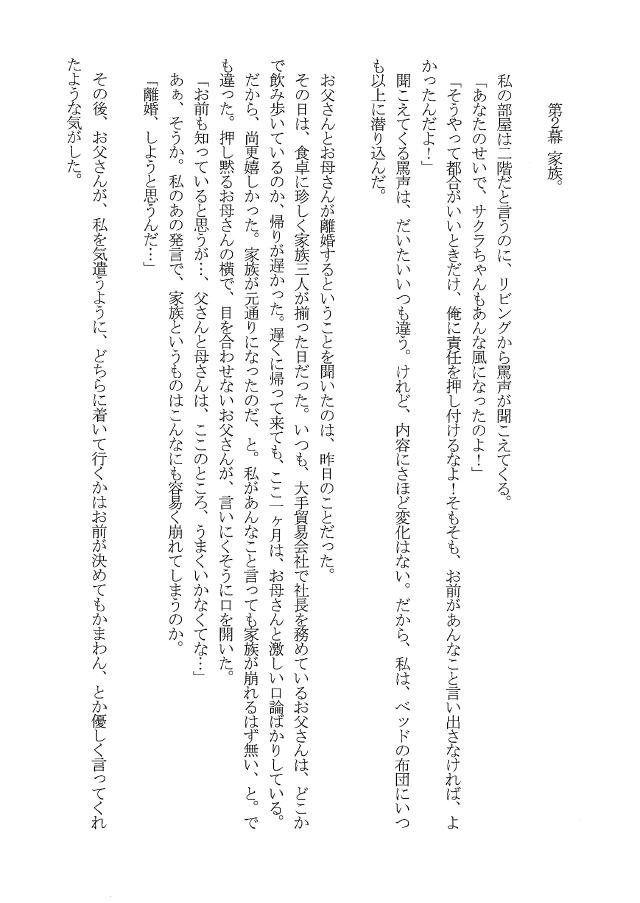 第2幕 家族。
私の部屋は二階だと言うのに、リビングから罵声が聞こえてくる。
「あなたのせいで、サクラちゃんもあんな風になったのよ！」
「そうやって都合がいいときだけ、俺に責任を押し付けるなよ！そもそも、お前があんなこと言い出さなければ、よ
かったんだよ！」
聞こえてくる罵声は、だいたいいつも違う。けれど、内容にさほど変化はない。だから、私は、ベッドの布団にいつ
も以上に潜り込んだ。
お父さんとお母さんが離婚するということを聞いたのは、昨日のことだった。
その日は、食卓に珍しく家族三人が揃った日だった。いつも、大手貿易会社で社長を務めているお父さんは、どこか
で飲み歩いているのか、帰りが遅かった。遅くに帰って来ても、ここ一ヶ月は、お母さんと激しい口論ばかりしている。
だから、尚更嬉しかった。家族が元通りになったのだ、と。私があんなこと言っても家族が崩れるはず無い、と。で
も違った。押し黙るお母さんの横で、目を合わせないお父さんが、言いにくそうに口を開いた。
「お前も知っていると思うが…、父さんと母さんは、ここのところ、うまくいかなくてな…」
あぁ、そうか。私のあの発言で、家族というものはこんなにも容易く崩れてしまうのか。
「離婚、しようと思うんだ…」
その後、お父さんが、私を気遣うように、どちらに着いて行くかはお前が決めてもかまわん、とか優しく言ってくれ
たような気がした。